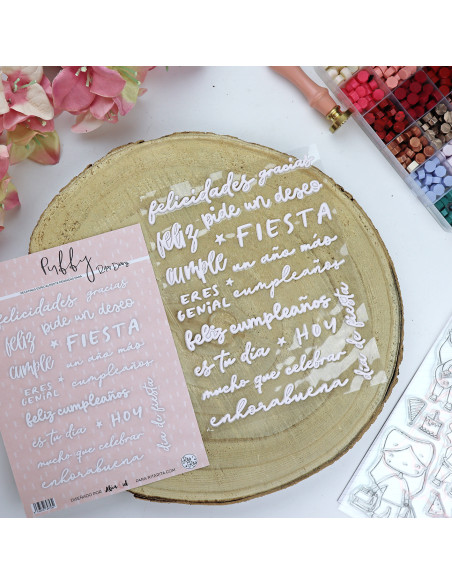 Puffy
felicidades gracias
feliz pide un deseo
cumple * FIESTA
un año más
ERES GENIAL cumpleaños
feliz cumpleaños
es tu día * HOY
mucho que celebrar
enhorabuena
día de fiesta
felicidades gracias
feliz pide un deseo
cumple * FIESTA
un año más
ERES GENIAL cumpleaños
feliz cumpleaños
es tu día * HOY
mucho que celebrar
enhorabuena
día de fiesta
DISEÑADO POR